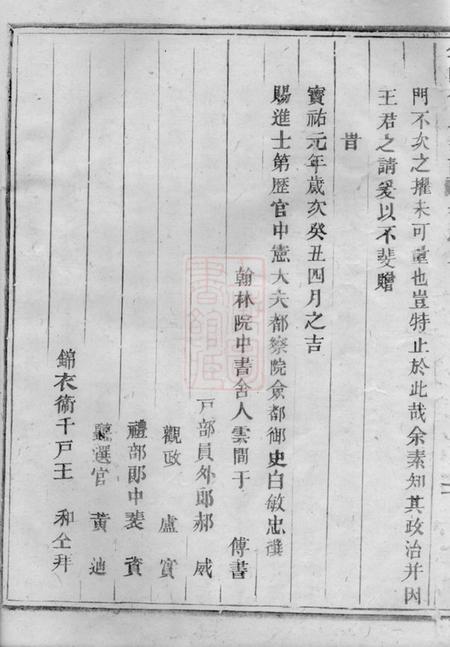 門不次之擢未可量也豈特止於此哉余素知其政治并因
王君之請爰以不斐贈
旹
寶祐元年歲次癸丑四月之吉
賜進士第歷官中憲大夫都察院僉都御史白敏忠譔
翰林院中書舍人雲間于 傅書
戸部員外郎郝 威
觀政 盧實
禮部郎中裴 資
鹽選官 黃 迪
錦衣衛千戸王 和仝拜